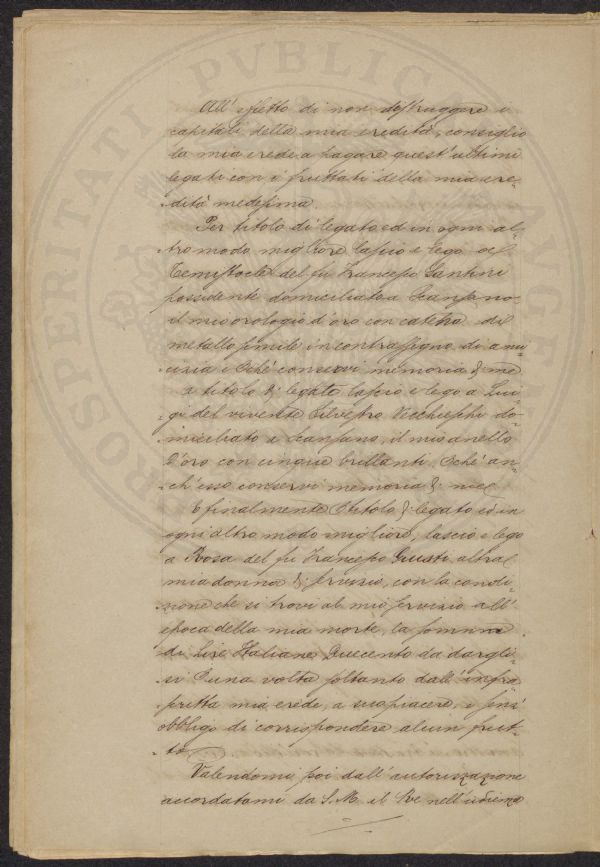 All' effetto di non distruggere i
capitali della mia eredità, consiglio
la mia erede a pagare quest'ultimi
legati con i fruttati della mia ere-
dità medesima.
Per titolo di legato ed in ogni al-
tro modo migliore lascio e lego a
Temistocle del fu Francesco Santini
possidente domiciliato a Scansano
il mio orologio d'oro con catena di
metallo simile in contrassegno di ami-
cizia e perché conservi memoria di me
a titolo di legato lascio e lego a Lui-
gi del vivente Silvestro Vecchieschi do-
miciliato a Scansano, il mio anello
d'oro con cinque brillanti, perché an-
ch'esso conservi memoria di me
E finalmente a titolo di legato ed in
ogni altro modo migliore, lascio e lego
a Rosa del fu Francesco Giusti altra
mia donna di servizio, con la condi-
zione che si trovi al mio servizio all'
epoca della mia morte, la somma
di Lire Italiane Duecento da dargli-
si per una volta soltanto dall' infra-
scritta mia erede, a suo piacere, e senz'
obbligo di corrispondere alcun frut-
to.
Valendomi poi dall' autorizzazione
accordatami da S. M. il Re nell' udienza
PROSPERITATI PVBLICAE AVGENDAE